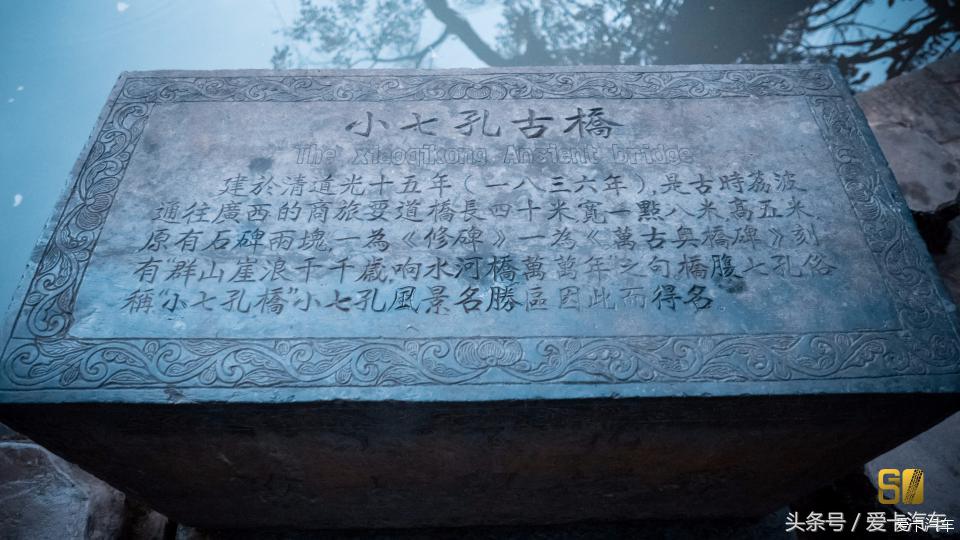 小七孔古橋
The xiaoqikong Ancient bridge
建於清道光十五年(一八三六年),是古時荔波
通往廣西的商旅要道橋長四十米寬一點八米,高五米.
原有石碑兩塊一為《修碑》一為《萬古奧橋碑》刻
有"群山崖浪千千歲,响水河橋萬萬年"之句橋腹七孔俗
稱"小七孔橋"小七孔風景名勝區因此而得名
头条号 / 爱卡汽车